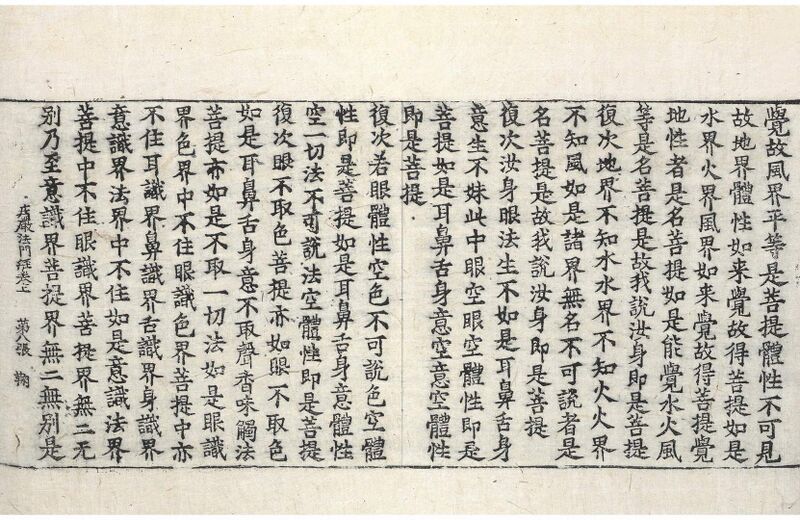 覺故風界平等是菩提體性不可見
故地界體性如来覺故得菩提如是
水界火界風界如来覺故得菩提覺
地性者是名菩提如是能覺水火風
等是名菩提是故我說汝身即是菩提
復次地界不知水水界不知火火界
不知風如是諸界無名不可說者是
名菩提是故我說汝身即是菩提
復次汝身眼法生不如是耳鼻舌身
意生不妹此中眼空眼空體性即是
菩提如是耳鼻舌身意空意空體性
即是菩提
復次若眼體性空色不可說色空體
性即是菩提如是耳鼻舌身意體性
空一切法不可說法空體性即是菩提
復次眼不取色菩提亦如眼不取色
如是耳鼻舌身意不取聲香味觸法
菩提亦如是不取一切法如是眼識
界色界中不住眼識色界菩提中亦
不住耳識界鼻識界舌識界身識界
意識界法界中不住如是意識法界
菩提中不住眼識界菩提界無二无
別乃至意識界菩提界無二無別是
嚴法門經卷上 第八張